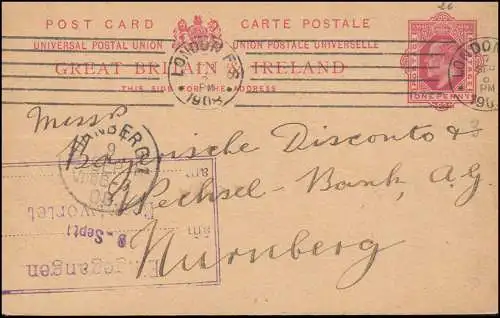 26
POST CARD CARTE POSTALE
UNIVERSAL POSTAL UNION UNION POSTALE UNIVERSELLE
GREAT BRITAIN & IRELAND
THIS SIDE FOR THE ADDRESS
ONE PENNY
LONDON F.S.
PM
1903
LONDON
PM
Messrs
Bayerische Disconto &
Wechsel-Bank, A.G.
Nürnberg
NÜRNBERG 1
9
Eingegangen
am 8 - Sept.
Beantwortet
am